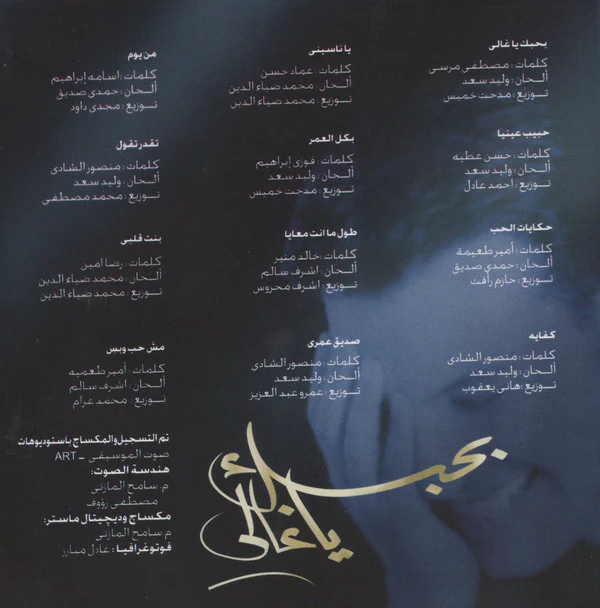 بحبك يا غالى
كلمات : مصطفى مرسى
ألحان : وليد سعد
توزيع : مدحت خميس
حبيب عينيا
كلمات : حسن عطيه
ألحان : وليد سعد
توزيع : أحمد عادل
حكايات الحب
كلمات : أمير طعيمة
ألحان : حمدى صديق
توزيع : حازم رأفت
كفايه
كلمات : منصور الشادى
ألحان : وليد سعد
توزيع : هانى يعقوب
يا ناسينى
كلمات : عماد حسن
ألحان : محمد ضياء الدين
توزيع : محمد ضياء الدين
بكل العمر
كلمات : فوزى إبراهيم
ألحان : وليد سعد
توزيع : مدحت خميس
طول ما انت معايا
كلمات : خالد منير
ألحان : اشرف سالم
توزيع : اشرف محروس
صديق عمرى
كلمات : منصور الشادى
ألحان : وليد سعد
توزيع : عمرو عبد العزيز
من يوم
كلمات : اسامه إبراهيم
ألحان : حمدى صديق
توزيع : مجدى داود
تقدر تقول
كلمات : منصور الشادى
ألحان : وليد سعد
توزيع : محمد مصطفى
بنت قلبى
كلمات : رضا امين
ألحان : محمد ضياء الدين
توزيع : محمد ضياء الدين
مش حب وبس
كلمات : أمير طعميه
ألحان : اشرف سالم
توزيع : محمد عرام
تم التسجيل والمكساج باستوديوهات
صوت الموسيقى - ART
هندسة الصوت :
م. سامح المازنى
مصطفى رؤوف
مكساج وديجيتال ماستر :
م. سامح المازنى
فوتوغرافيا : عادل مبارز
بحبك
يا غالى